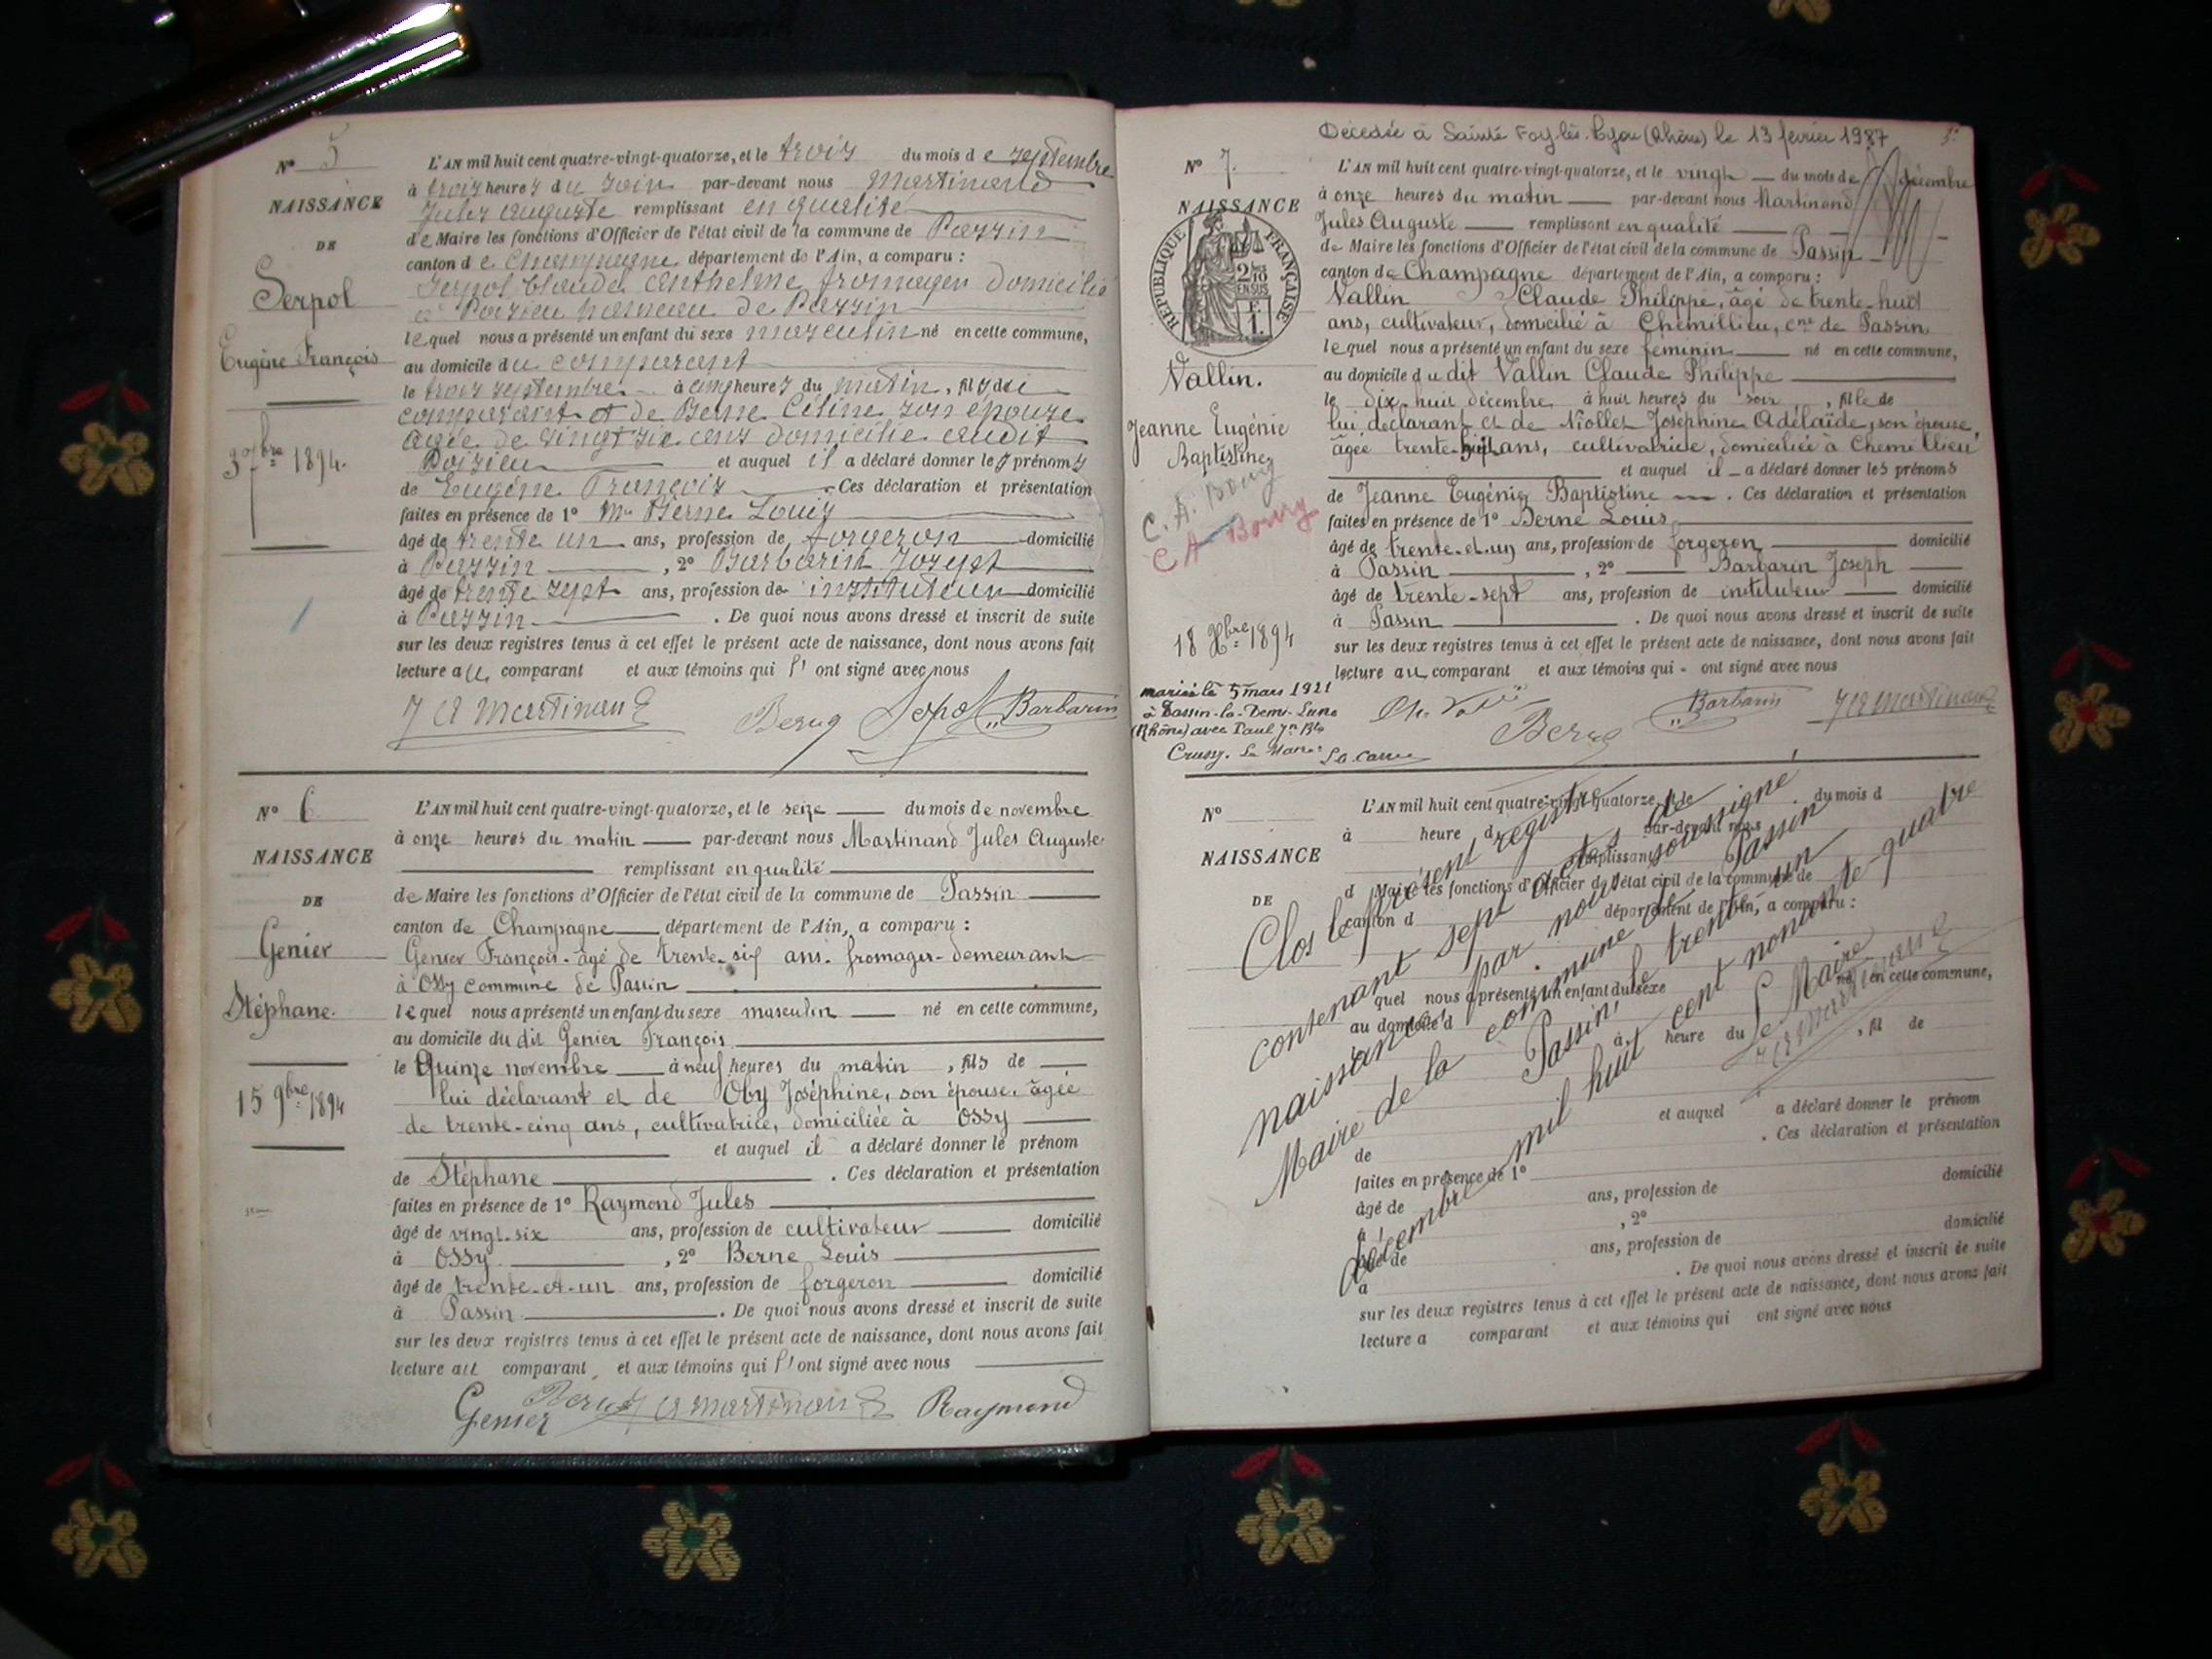 N° 5
NAISSANCE
DE
Serpol
Eugène François
3 7bre 1894.
L'AN mil huit cent quatre-vingt-quatorze, et le trois du mois de septembre
à trois heures du soir par-devant nous Martinand
Jules Auguste remplissant en qualité
de Maire les fonctions d'Officier de l'état civil de la commune de Passin
canton de Champagne département de l'Ain, a comparu :
Serpol Claude Anthelme fromager domicilié
à Poisieu hameau de Passin
lequel nous a présenté un enfant du sexe masculin né en cette commune,
au domicile du comparant
le trois septembre à cinq heures du matin, fils du
comparant et de Berne Céline son épouse
âgée de vingt six ans domicilie audit
Poisieu et auquel il a déclaré donner les prénoms
de Eugène François . Ces déclaration et présentation
faites en présence de 1° Mr Berne Louis
âgé de trente un ans, profession de forgeron domicilié
à Passin , 2° Barbarin Joseph
âgé de trente sept ans, profession de instituteur domicilié
à Passin . De quoi nous avons dressé et inscrit de suite
sur les deux registres tenus à cet effet le présent acte de naissance, dont nous avons fait
lecture au comparant et aux témoins qui l' ont signé avec nous
J A Martinand Berne Serpol Barbarin
N° 6
NAISSANCE
DE
Genier
Stéphane.
15 9bre 1894
L'AN mil huit cent quatre-vingt-quatorze, et le seize du mois de novembre
à onze heures du matin par-devant nous Martinand Jules Auguste
remplissant en qualité
de Maire les fonctions d'Officier de l'état civil de la commune de Passin
canton de Champagne département de l'Ain, a comparu :
Genier François - âgé de trente-six ans. fromager - demeurant
à Ossy commune de Passin
lequel nous a présenté un enfant du sexe masculin né en cette commune,
au domicile du dit Genier François
le Quinze novembre à neuf heures du matin , fils de
lui déclarant et de Oby Joséphine, son épouse, âgée
de trente-cinq ans, cultivatrice, domiciliée à Ossy
et auquel il a déclaré donner le prénom
de Stéphane . Ces déclaration et présentation
faites en présence de 1° Raymond Jules
âgé de vingt-six ans, profession de cultivateur domicilié
à Ossy , 2° Berne Louis
âgé de trente-et-un ans, profession de forgeron domicilié
à Passin . De quoi nous avons dressé et inscrit de suite
sur les deux registres tenus à cet effet le présent acte de naissance, dont nous avons fait
lecture au comparant et aux témoins qui l' ont signé avec nous
Genier Berne J A Martinand Raymond
Décédée à Sainte Foy-lès-Lyon (Rhône) le 13 février 1987
5.
N° 7.
NAISSANCE
RÉPUBLIQUE FRANÇAISE
2/10 EN SUS
Vallin.
Jeanne Eugénie
Baptistine
C. A. Bourg
C A Bourg
18 Xbre 1894
mariée le 5 mars 1921
à Tassin-la-Demi-Lune
(Rhône) avec Paul Jn Bte
Crussy. Le Maire
L'AN mil huit cent quatre-vingt-quatorze, et le vingt du mois de décembre
à onze heures du matin par-devant nous Martinand
Jules Auguste remplissant en qualité
de Maire les fonctions d'Officier de l'état civil de la commune de Passin
canton de Champagne département de l'Ain, a comparu :
Vallin Claude Philippe, âgé de trente-huit
ans, cultivateur, domicilié à Chemillieu, cne de Passin
lequel nous a présenté un enfant du sexe féminin né en cette commune,
au domicile du dit Vallin Claude Philippe
le dix-huit décembre à huit heures du soir , fille de
lui déclarant et de Niollet Joséphine Adélaïde, son épouse,
âgée trente-huit ans, cultivatrice, domiciliée à Chemillieu
et auquel il a déclaré donner les prénoms
de Jeanne Eugénie Baptistine . Ces déclaration et présentation
faites en présence de 1° Berne Louis
âgé de trente-et-un ans, profession de forgeron domicilié
à Passin , 2° Barbarin Joseph
âgé de trente-sept ans, profession de instituteur domicilié
à Passin . De quoi nous avons dressé et inscrit de suite
sur les deux registres tenus à cet effet le présent acte de naissance, dont nous avons fait
lecture au comparant et aux témoins qui - ont signé avec nous
Berne Barbarin J A Martinand
N°
NAISSANCE
DE
L'AN mil huit cent quatre-vingt-quatorze, et le du mois d
à heure d par-devant nous
remplissant
d Maire les fonctions d'Officier de l'état civil de la commune de
canton d département de l'Ain, a comparu :
quel nous a présenté un enfant du sexe né en cette commune,
au domicile d
à heure du , fil de
et auquel a déclaré donner le prénom
de . Ces déclaration et présentation
faites en présence de 1°
âgé de ans, profession de domicilié
à , 2°
âgé de ans, profession de domicilié
à . De quoi nous avons dressé et inscrit de suite
sur les deux registres tenus à cet effet le présent acte de naissance, dont nous avons fait
lecture a comparant et aux témoins qui ont signé avec nous
Clos le présent registre
contenant sept actes de
naissances, par nous soussigné
Maire de la commune de Passin
Passin, le trente-un
décembre mil huit cent nonante-quatre
Le Maire
J A Martinand